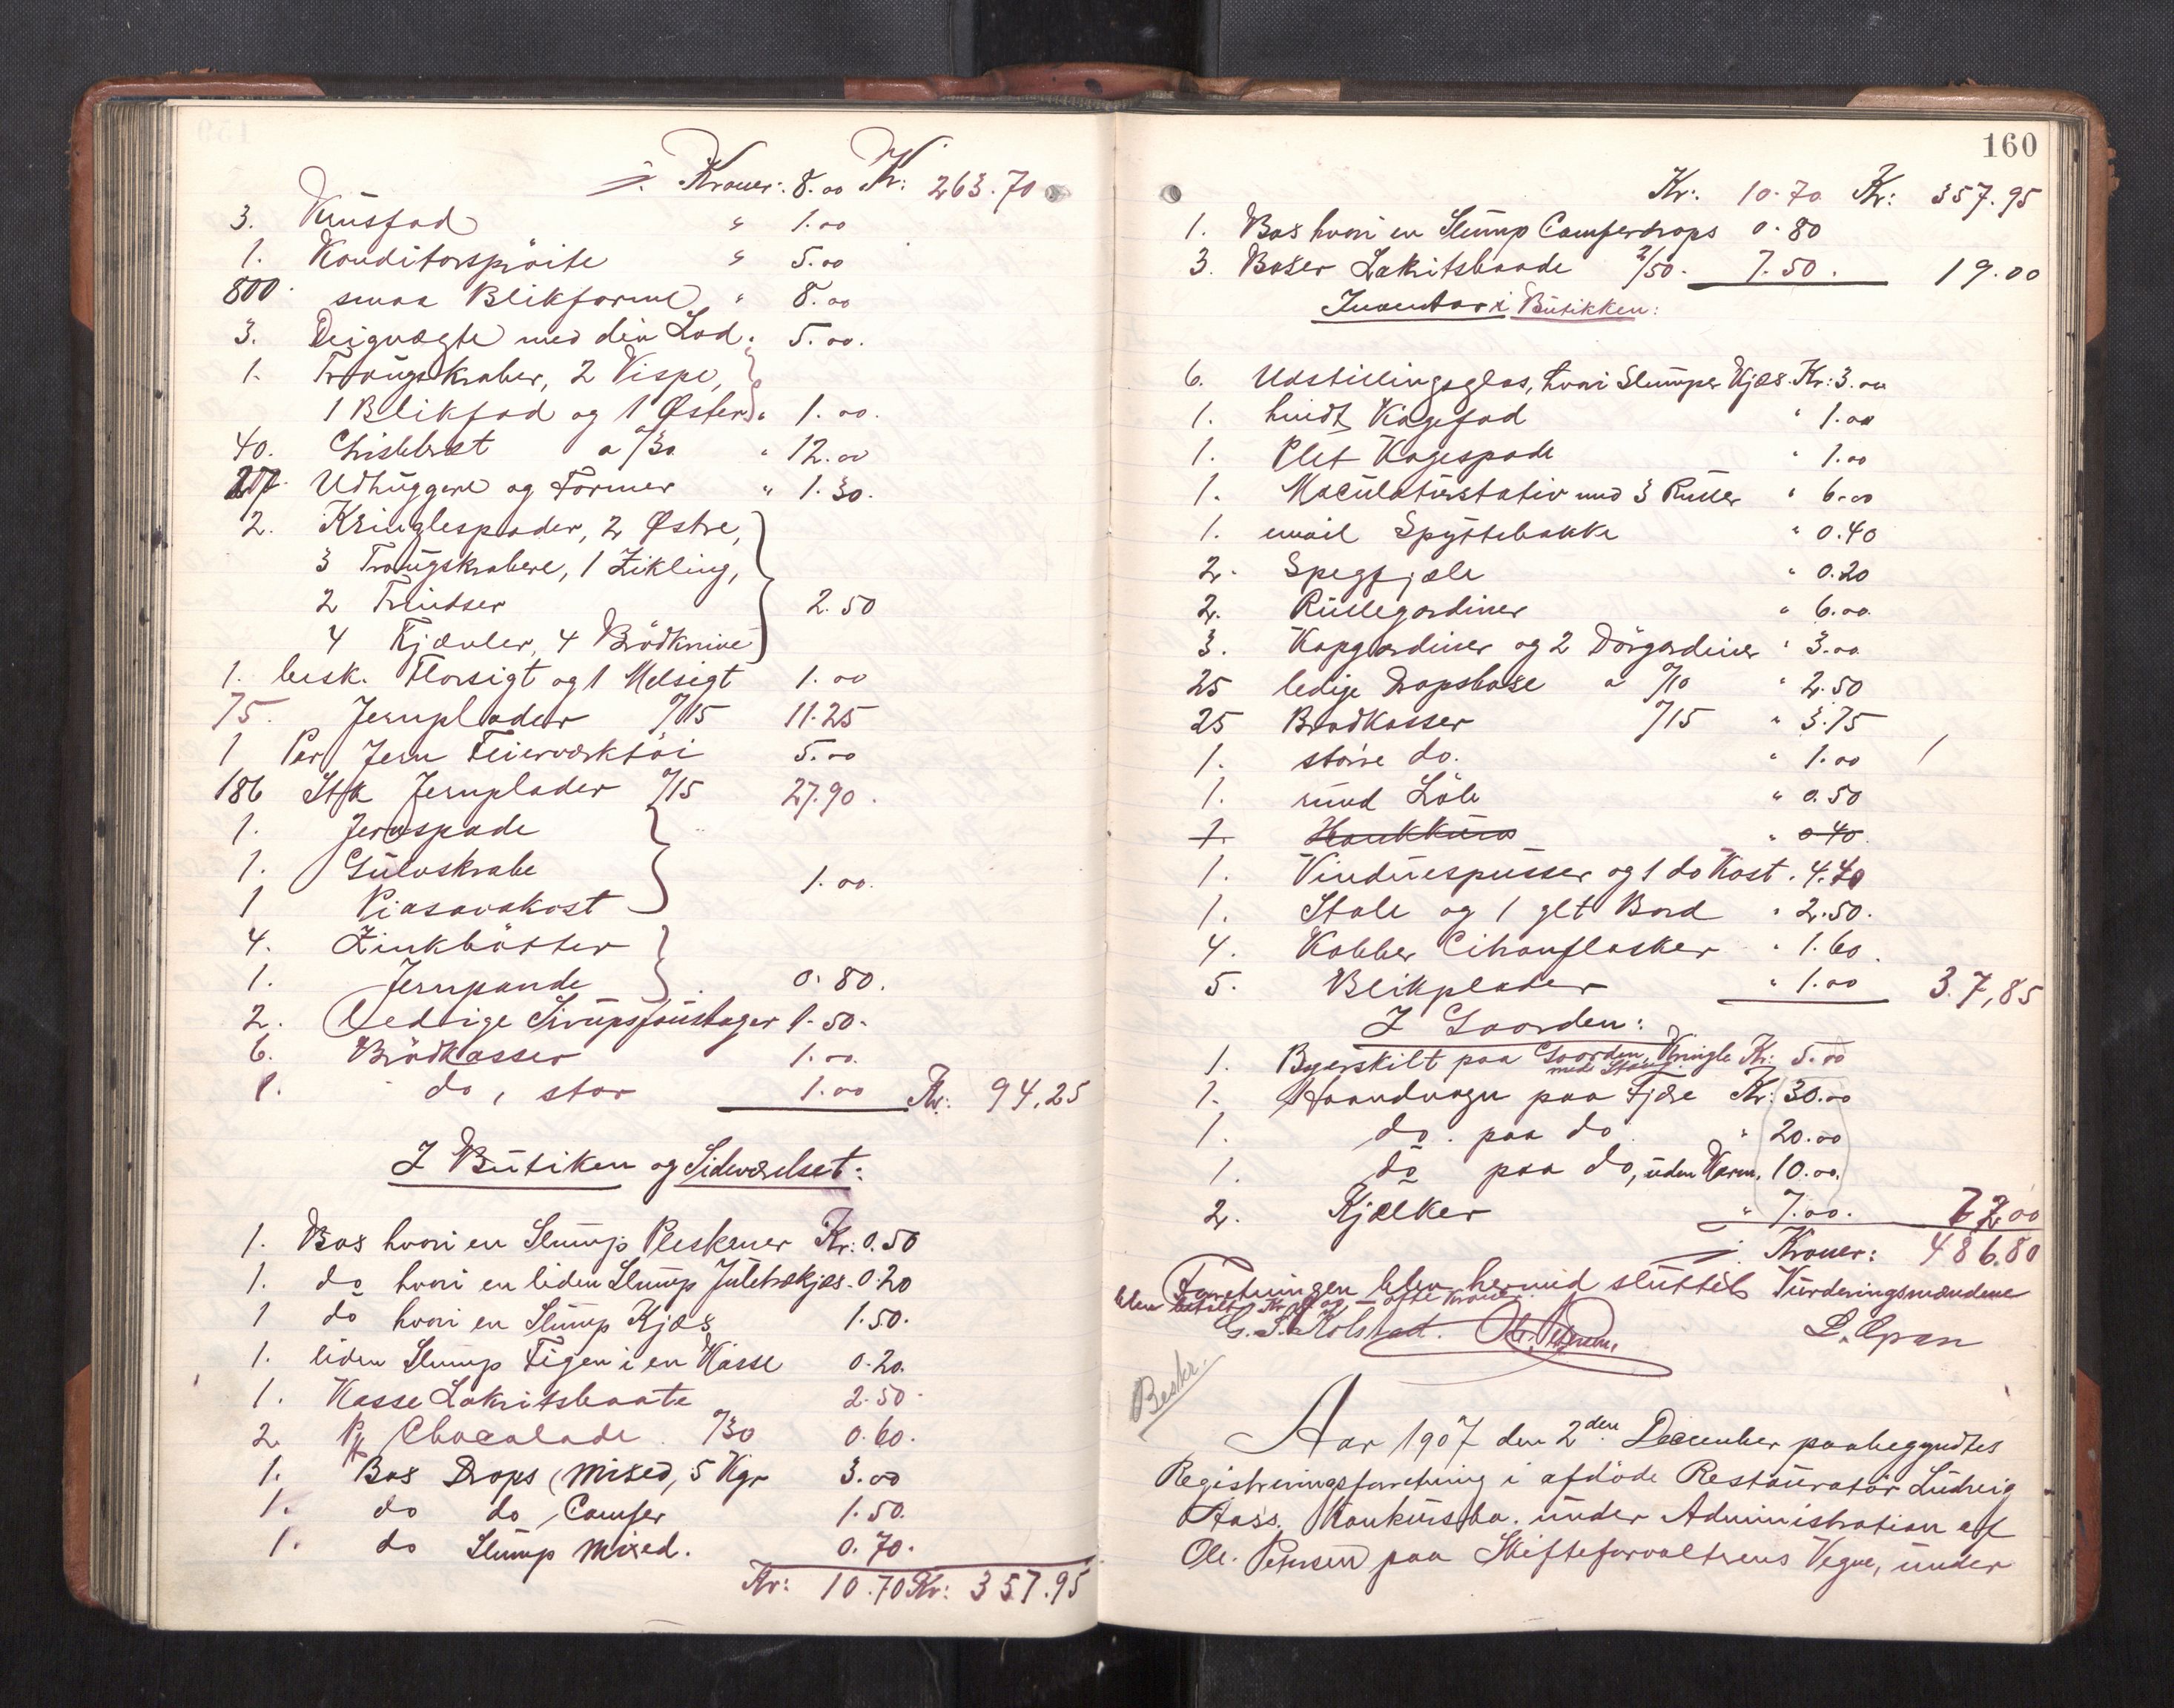 i Kroner: 8.00 Kr: 263.70
3. Krusfad " 1.00
1. Konditorspröite " 5.00
800 smaa Blikforme " 8.00
3. Deigvægte med div Lod. 5.00.
1. Traugskraber, 2 Vispe,
1 Blikfad og 1 Øster " 1.00.
40. a /30 " 12.00
27. Udhuggere og Former " 1.30.
2. Kringlespader, 2 Østre,
3 Traugskrabere, 1 Zikling,
2 Trindser 2.50
4 Kjævler, 4 Brödknive
1. besk. Florsigt og 1 Melsigt 1.00
75. Jernplader /15 11.25
1 Par Jern Feierværktöi 5.00
186 Stk Jernplader /15 27.90.
1. Jernspade
1. Gulvskrabe 1.00.
1 Piasavakost
4. Zinkbötter
1. Jernpande 0.80.
2. Ledige Sirupsfoustager 1.50.
6. Brödkasser 1.00.
1. do, stor 1.00 Kr: 94,25
I Butiken og Sideværelset:
1. Bos hvori en Slump Pleskener Kr: 0.50
1. do hvori en liden Slump Juletrækjæs. 0.20
1 do hvori en Slump Kjæs 1.50.
1. liden Slump Figen i en Kasse 0.20.
1. Kasse Lakritsbaate 2.50.
2. Pk Chocolade /30 0.60.
1. Bos Drops (Mixed, 5 Kgr 3.00
1. do do Camfer 1.50.
1. do Slump Mixed. 0.70.
Kr: 10.70 Kr: 357.95
160
Kr: 10.70 Kr: 357.95
1. Bos hvori en Slump Camferdrops 0.80
3. Boser Lakitsbaade 2/50. 7.50. 19.00
Inventar i Butikken:
6. Udstillingsglas, hvori Slumper Kjæs. Kr: 3.00
1. hvidt Kagefad " 1.00
1. Plet Kagespade " 1.00
1. Maculaturstativ med 3 Ruller " 6.00
1. email Spyttebakke " 0.40
2. Spegfjæle " 0.20
2. Rullegardiner " 6.00.
3. Kapgardiner og 2 Dörgardiner " 3.00
25 ledige Dropsbose a /10 " 2.50
25 Brødkasser /15 " 3.75
1. större do. " 1.00
1. rund Löb " 0.50
1. Hankkurv " 0.40.
1. Vinduespusser og 1 do Kost. 4.40
1. Stole og 1 glt Bord " 2.50.
4. Kobber Citronflasker " 1.60.
5. Blikplader " 1.00 37,85
I Gaarden:
1. Byerskilt paa Gaarden, Kringle Kr: 5.00
med Stang
1. Haandvogn paa Fjære Kr: 30.00
1. do. paa do. " 20.00
1. do paa do, uden Karm. 10.00.
2. Kjælker " 7.00. 72.00
i Kroner: 486.80
Forretningen blev hermed sluttet Vurderingsmændene
blev betalt Kr 8 og — otte Kroner
G. S. Kolstad. Ole Petersen. L. Opsan
Beskr.
Aar 1907 den 2den December paabegyndtes
Registreringsforretning i afdöde Restauratör Ludvig
Aass, Konkursbo. under Administration af
Ole. Petersen paa Skifteforvalterens Vegne, under